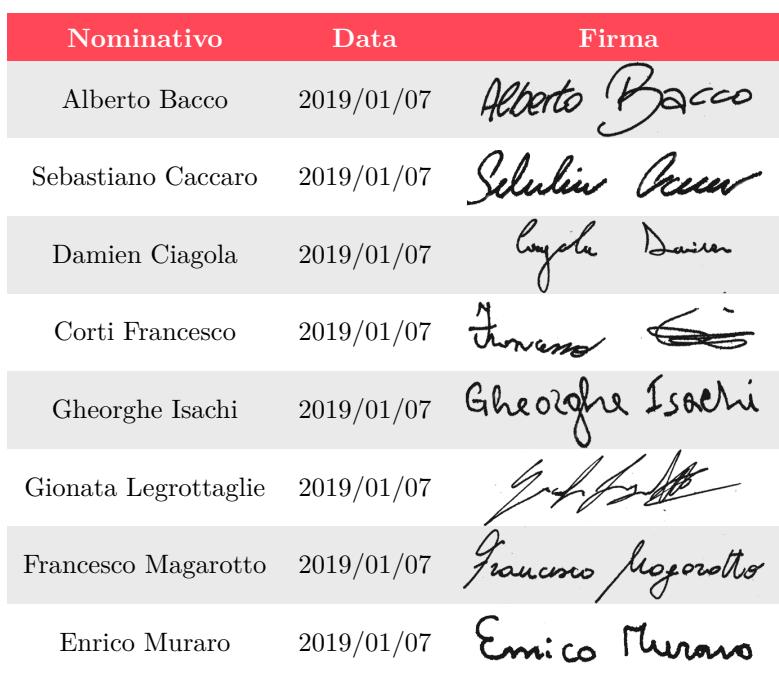 Nominativo Data Firma
Alberto Bacco 2019/01/07 Alberto Bacco
Sebastiano Caccaro 2019/01/07
Damien Ciagola 2019/01/07
Corti Francesco 2019/01/07
Gheorghe Isachi 2019/01/07 Gheorghe Isachi
Gionata Legrottaglie 2019/01/07
Francesco Magarotto 2019/01/07 Francesco Magarotto
Enrico Muraro 2019/01/07 Enrico Muraro